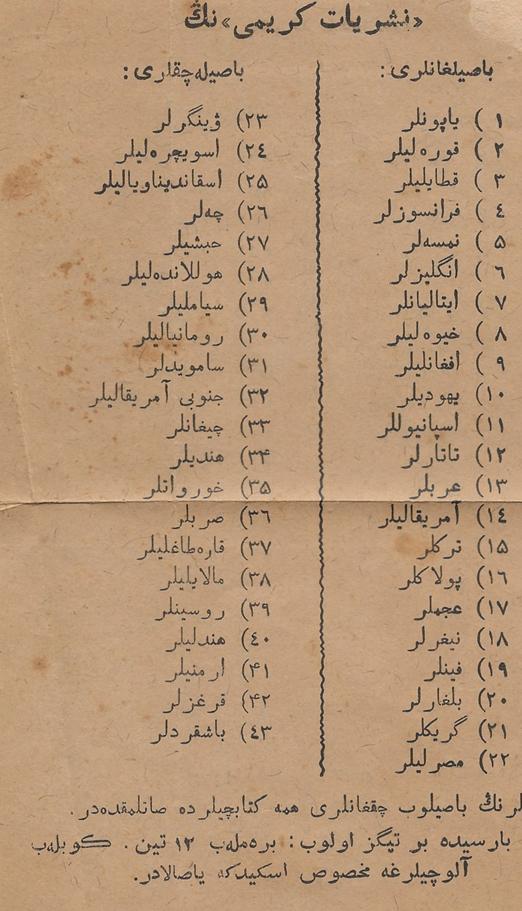 «نشریات کریمی»نڭ
باصیلغانلری:
۱ ) یاپونلر
۲ ) قوره‌لیلر
۳ ) قطایلیلر
٤ ) فرانسوزلر
۵ ) نمسه‌لر
٦ ) انگلیزلر
۷ ) ایتالیانلر
۸ ) خیوه‌لیلر
۹ ) افغانلیلر
۱۰) یهودیلر
۱۱) اسپانیوللر
۱۲) تاتارلر
۱۳) عربلر
۱٤) آمریقالیلر
۱۵) ترکلر
۱٦) پولاکلر
۱۷) عجملر
۱۸) نیغرلر
۱۹) فینلر
۲۰) بلغارلر
۲۱) گریکلر
۲۲) مصرلیلر
باصیله‌چقلری:
۲۳) ۋینگرلر
۲٤) اسویچره‌لیلر
۲۵) اسقاندیناویالیلر
۲٦) چه‌لر
۲۷) حبشیلر
۲۸) هوللانده‌لیلر
۲۹) سیاملیلر
۳۰) رومانیالیلر
۳۱) سامویدلر
۳۲) جنوبی آمریقالیلر
۳۳) چیغانلر
۳۴) هندیلر
۳۵) خورواتلر
۳٦) صربلر
۳۷) قاره‌طاغلیلر
۳۸) مالایلیلر
۳۹) روسینلر
٤۰) هندلیلر
۴۱) ارمنیلر
۴۲) قرغزلر
٤۳) باشقردلر
لرنڭ باصیلوب چقغانلری همه کتابچیلرده صاتلمقده‌در.
بارسیده بر تیگز اولوب: بره‌مله‌ب ۱۲ تین. کوبله‌ب
آلوچیلرغه مخصوص اسکیدکه یاصالادر.